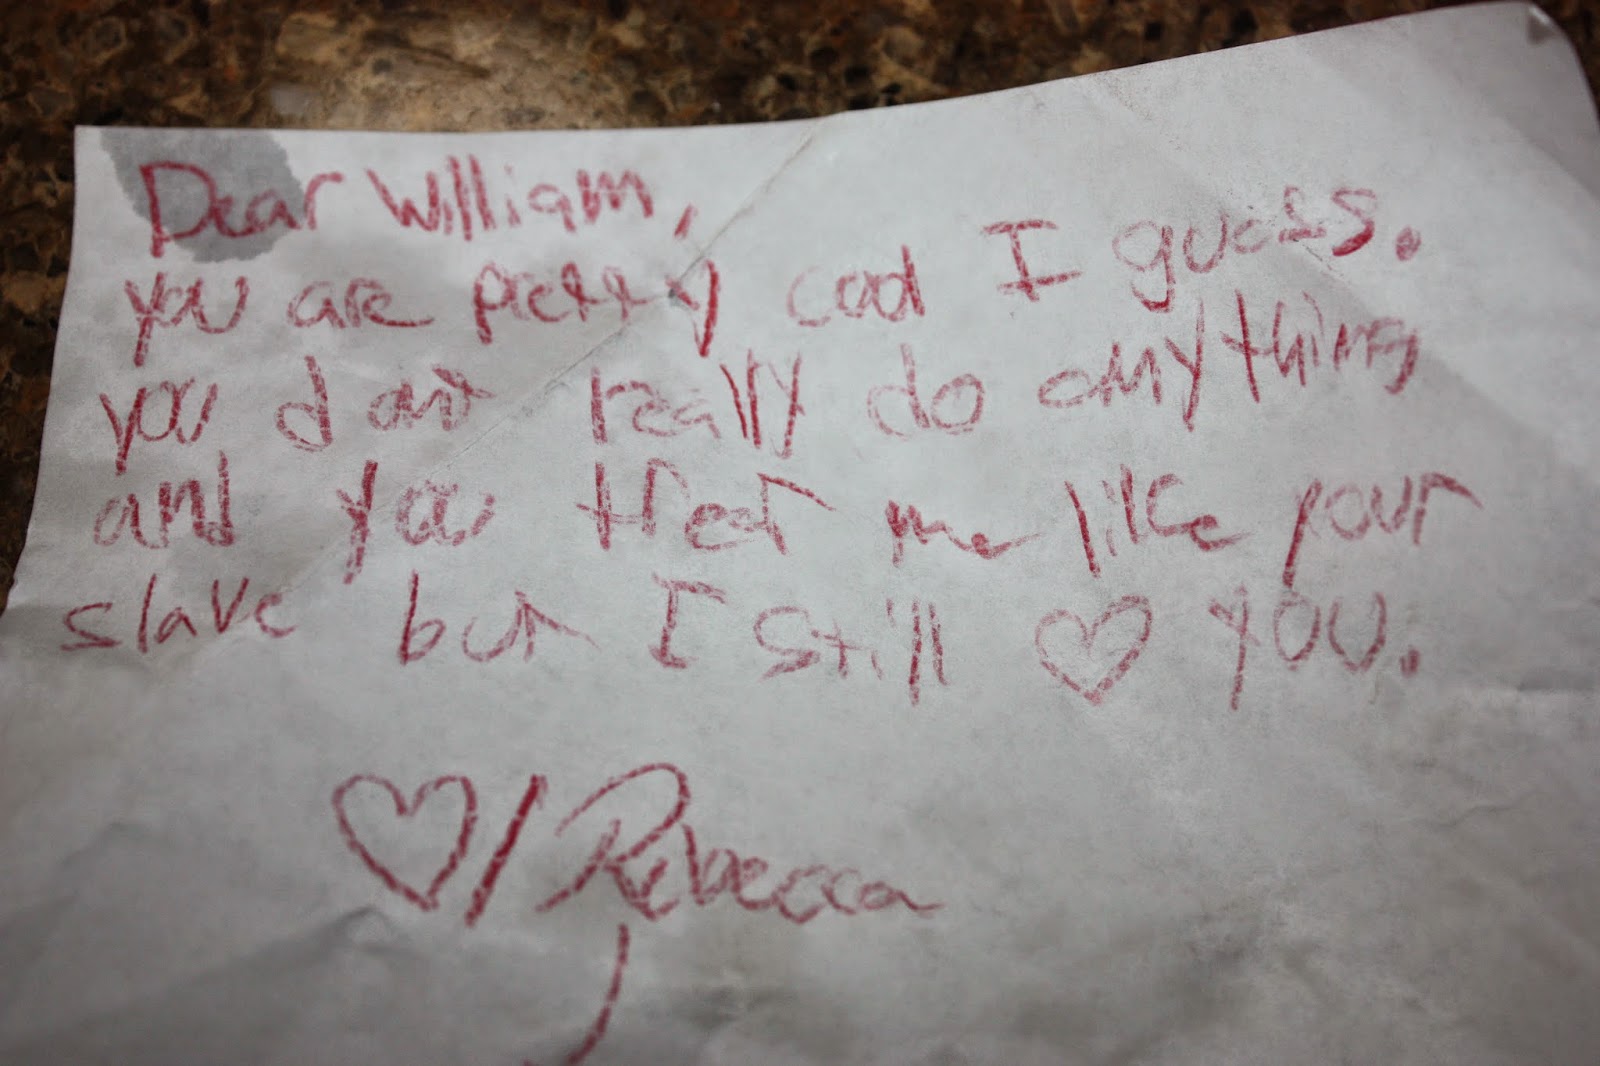 Dear William,
you are pretty cool I guess.
you dont really do anything
and you treat me like your
slave but I still ♡ you.
♡/Rebecca